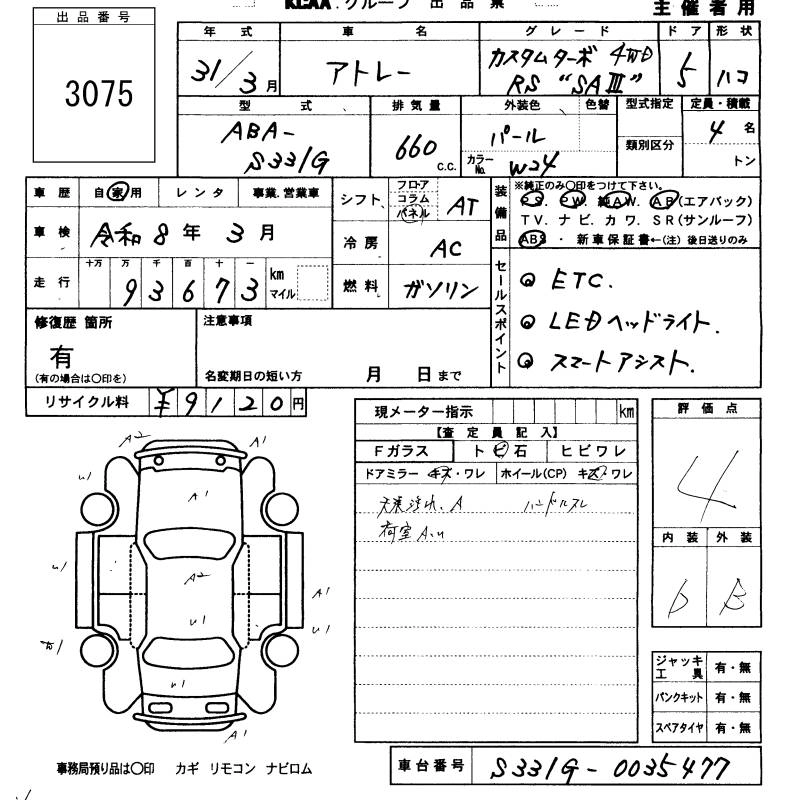 KCAA グループ 出品票
主催者用
出品番号
3075
年式 車名 グレード ドア 形状
31/3月 アトレー カスタムターボ 4WD RS "SAⅢ" 5 ハコ
型式 排気量 外装色 色替 型式指定 定員・積載
ABA-S331G 660c.c. パール カラーNo. W24 類別区分 4名 トン
車歴 自家用 レンタ 事業.営業車
シフト フロア コラム パネル AT
装備品 ※純正のみ○印をつけて下さい。
PS. PW. 純AW. AB(エアバック)
TV. ナビ. カワ. SR(サンルーフ)
ABS ・ 新車保証書←(注) 後日送りのみ
車検 令和8年3月
冷房 AC
走行 十万 万 千 百 十 一
93673 km マイル
燃料 ガソリン
セールスポイント
◎ ETC.
◎ LEDヘッドライト.
◎ スマートアシスト.
修復歴 箇所
有
(有の場合は○印を)
注意事項
名変期日の短い方 月 日まで
リサイクル料 ¥9120円
現メーター指示 km
【査定員記入】
Fガラス トビ石 ヒビワレ
ドアミラー キズ・ワレ ホイール(CP) キズ・ワレ
A ハンドルスレ
荷室 A.U
評価点
4
内装 外装
D B
A2 A1
U1
A1
U1
A2
A1
U1 U1
A1
U1
A1
ジャッキ工具 有・無
パンクキット 有・無
スペアタイヤ 有・無
事務局預り品は○印 カギ リモコン ナビロム
車台番号 S331G-0035477